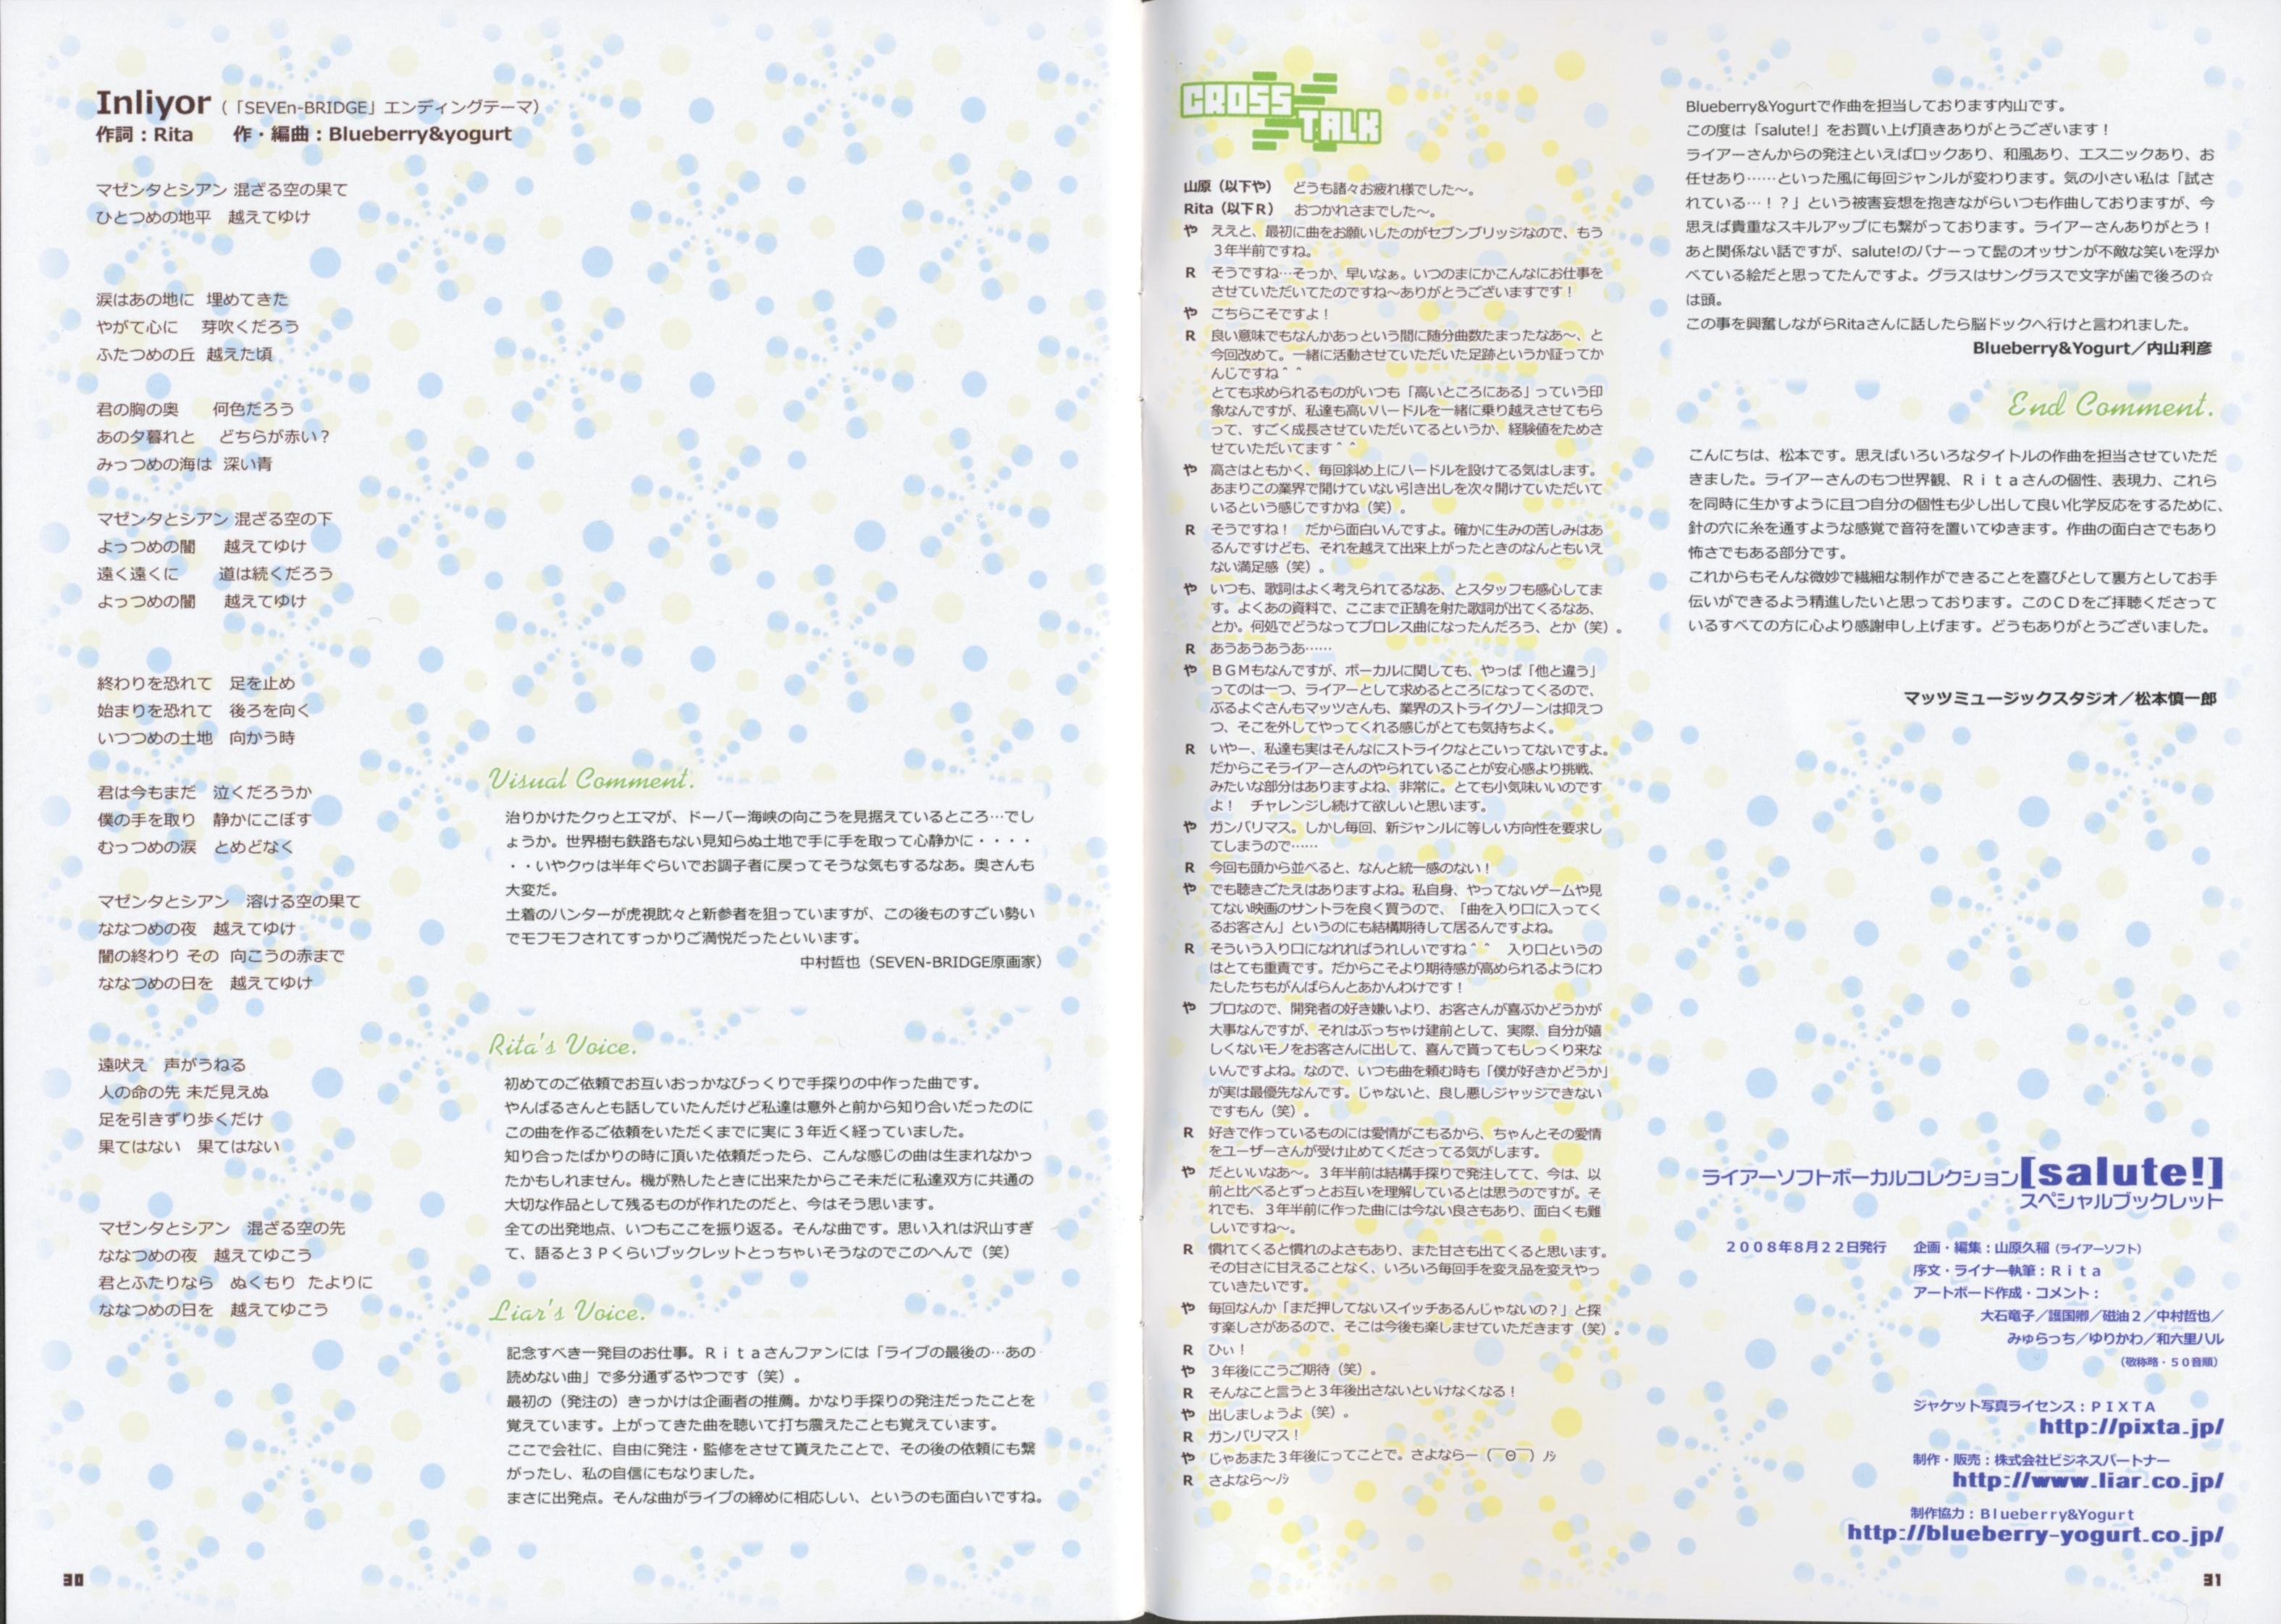 Inliyor（「SEVEn-BRIDGE」エンディングテーマ）
作詞：Rita　作・編曲：Blueberry&yogurt
マゼンタとシアン 混ざる空の果て
ひとつめの地平　越えてゆけ
涙はあの地に　埋めてきた
やがて心に　芽吹くだろう
ふたつめの丘　越えた頃
君の胸の奥　何色だろう
あの夕暮れと　どちらが赤い？
みっつめの海は　深い青
マゼンタとシアン 混ざる空の下
よっつめの闇　越えてゆけ
遠く遠くに　道は続くだろう
よっつめの闇　越えてゆけ
終わりを恐れて　足を止め
始まりを恐れて　後ろを向く
いつつめの土地　向かう時
君は今もまだ　泣くだろうか
僕の手を取り　静かにこぼす
むっつめの涙　とめどなく
マゼンタとシアン　溶ける空の果て
ななつめの夜　越えてゆけ
闇の終わり その　向こうの赤まで
ななつめの日を　越えてゆけ
遠吠え　声がうねる
人の命の先 未だ見えぬ
足を引きずり歩くだけ
果てはない　果てはない
マゼンタとシアン　混ざる空の先
ななつめの夜　越えてゆこう
君とふたりなら　ぬくもり たよりに
ななつめの日を　越えてゆこう
Visual Comment.
治りかけたクゥとエマが、ドーバー海峡の向こうを見据えているところ…でし
ょうか。世界樹も鉄路もない見知らぬ土地で手に手を取って心静かに・・・・
・・いやクゥは半年ぐらいでお調子者に戻ってそうな気もするなあ。奥さんも
大変だ。
土着のハンターが虎視眈々と新参者を狙っていますが、この後ものすごい勢い
でモフモフされてすっかりご満悦だったといいます。
中村哲也（SEVEN-BRIDGE原画家）
Rita's Voice.
初めてのご依頼でお互いおっかなびっくりで手探りの中作った曲です。
やんばるさんとも話していたんだけど私達は意外と前から知り合いだったのに
この曲を作るご依頼をいただくまでに実に３年近く経っていました。
知り合ったばかりの時に頂いた依頼だったら、こんな感じの曲は生まれなかっ
たかもしれません。機が熟したときに出来たからこそ未だに私達双方に共通の
大切な作品として残るものが作れたのだと、今はそう思います。
全ての出発地点、いつもここを振り返る。そんな曲です。思い入れは沢山すぎ
て、語ると３Ｐくらいブックレットとっちゃいそうなのでこのへんで（笑）
Liar's Voice.
記念すべき一発目のお仕事。Ｒｉｔａさんファンには「ライブの最後の…あの
読めない曲」で多分通ずるやつです（笑）。
最初の（発注の）きっかけは企画者の推薦。かなり手探りの発注だったことを
覚えています。上がってきた曲を聴いて打ち震えたことも覚えています。
ここで会社に、自由に発注・監修をさせて貰えたことで、その後の依頼にも繋
がったし、私の自信にもなりました。
まさに出発点。そんな曲がライブの締めに相応しい、というのも面白いですね。
30
CROSS TALK
山原（以下や）　どうも諸々お疲れ様でした〜。
Rita（以下Ｒ）　おつかれさまでした〜。
や　ええと、最初に曲をお願いしたのがセブンブリッジなので、もう
３年半前ですね。
R　そうですね…そっか、早いなぁ。いつのまにかこんなにお仕事を
させていただいてたのですね〜ありがとうございますです！
や　こちらこそですよ！
R　良い意味でもなんかあっという間に随分曲数たまったなあ〜、と
今回改めて。一緒に活動させていただいた足跡というか証ってか
んじですね＾＾
とても求められるものがいつも「高いところにある」っていう印
象なんですが、私達も高いハードルを一緒に乗り越えさせてもら
って、すごく成長させていただいてるというか、経験値をためさ
せていただいてます＾＾
や　高さはともかく、毎回斜め上にハードルを設けてる気はします。
あまりこの業界で開けていない引き出しを次々開けていただいて
いるという感じですかね（笑）。
R　そうですね！　だから面白いんですよ。確かに生みの苦しみはあ
るんですけども、それを越えて出来上がったときのなんともいえ
ない満足感（笑）。
や　いつも、歌詞はよく考えられてるなあ、とスタッフも感心してま
す。よくあの資料で、ここまで正鵠を射た歌詞が出てくるなあ、
とか。何処でどうなってプロレス曲になったんだろう、とか（笑）。
R　あうあうあうあ……
や　ＢＧＭもなんですが、ボーカルに関しても、やっぱ「他と違う」
ってのは一つ、ライアーとして求めるところになってくるので、
ぶるよぐさんもマッツさんも、業界のストライクゾーンは抑えつ
つ、そこを外してやってくれる感じがとても気持ちよく。
R　いやー、私達も実はそんなにストライクなとこいってないですよ。
だからこそライアーさんのやられていることが安心感より挑戦、
みたいな部分はありますよね、非常に。とても小気味いいのです
よ！　チャレンジし続けて欲しいと思います。
や　ガンバリマス。しかし毎回、新ジャンルに等しい方向性を要求し
てしまうので……
R　今回も頭から並べると、なんと統一感のない！
や　でも聴きごたえはありますよね。私自身、やってないゲームや見
てない映画のサントラを良く買うので、「曲を入り口に入ってく
るお客さん」というのにも結構期待して居るんですよね。
R　そういう入り口になれればうれしいですね＾＾　入り口というの
はとても重責です。だからこそより期待感が高められるようにわ
たしたちもがんばらんとあかんわけです！
や　プロなので、開発者の好き嫌いより、お客さんが喜ぶかどうかが
大事なんですが、それはぶっちゃけ建前として、実際、自分が嬉
しくないモノをお客さんに出して、喜んで貰ってもしっくり来な
いんですよね。なので、いつも曲を頼む時も「僕が好きかどうか」
が実は最優先なんです。じゃないと、良し悪しジャッジできない
ですもん（笑）。
R　好きで作っているものには愛情がこもるから、ちゃんとその愛情
をユーザーさんが受け止めてくださってる気がします。
や　だといいなあ〜。３年半前は結構手探りで発注してて、今は、以
前と比べるとずっとお互いを理解しているとは思うのですが。そ
れでも、３年半前に作った曲には今ない良さもあり、面白くも難
しいですね〜。
R　慣れてくると慣れのよさもあり、また甘さも出てくると思います。
その甘さに甘えることなく、いろいろ毎回手を変え品を変えやっ
ていきたいです。
や　毎回なんか「まだ押してないスイッチあるんじゃないの？」と探
す楽しさがあるので、そこは今後も楽しませていただきます（笑）。
R　ひぃ！
や　３年後にこうご期待（笑）。
R　そんなこと言うと３年後出さないといけなくなる！
や　出しましょうよ（笑）。
R　ガンバリマス！
や　じゃあまた３年後にってことで。さよならー（￣Θ￣）ﾉｼ
R　さよなら〜ﾉｼ
Blueberry&Yogurtで作曲を担当しております内山です。
この度は「salute!」をお買い上げ頂きありがとうございます！
ライアーさんからの発注といえばロックあり、和風あり、エスニックあり、お
任せあり……といった風に毎回ジャンルが変わります。気の小さい私は「試さ
れている…！？」という被害妄想を抱きながらいつも作曲しておりますが、今
思えば貴重なスキルアップにも繋がっております。ライアーさんありがとう！
あと関係ない話ですが、salute!のバナーって髭のオッサンが不敵な笑いを浮か
べている絵だと思ってたんですよ。グラスはサングラスで文字が歯で後ろの☆
は頭。
この事を興奮しながらRitaさんに話したら脳ドックへ行けと言われました。
Blueberry&Yogurt／内山利彦
End Comment.
こんにちは、松本です。思えばいろいろなタイトルの作曲を担当させていただ
きました。ライアーさんのもつ世界観、Ｒｉｔａさんの個性、表現力、これら
を同時に生かすように且つ自分の個性も少し出して良い化学反応をするために、
針の穴に糸を通すような感覚で音符を置いてゆきます。作曲の面白さでもあり
怖さでもある部分です。
これからもそんな微妙で繊細な制作ができることを喜びとして裏方としてお手
伝いができるよう精進したいと思っております。このＣＤをご拝聴くださって
いるすべての方に心より感謝申し上げます。どうもありがとうございました。
マッツミュージックスタジオ／松本慎一郎
ライアーソフトボーカルコレクション[salute!]
スペシャルブックレット
２００８年８月２２日発行　企画・編集：山原久稲（ライアーソフト）
序文・ライナー執筆：Ｒｉｔａ
アートボード作成・コメント：
大石竜子／護国卿／磁油２／中村哲也／
みゅらっち／ゆりかわ／和六里ハル
（敬称略・５０音順）
ジャケット写真ライセンス：ＰＩＸＴＡ
http://pixta.jp/
制作・販売：株式会社ビジネスパートナー
http://www.liar.co.jp/
制作協力：Blueberry&Yogurt
http://blueberry-yogurt.co.jp/
31